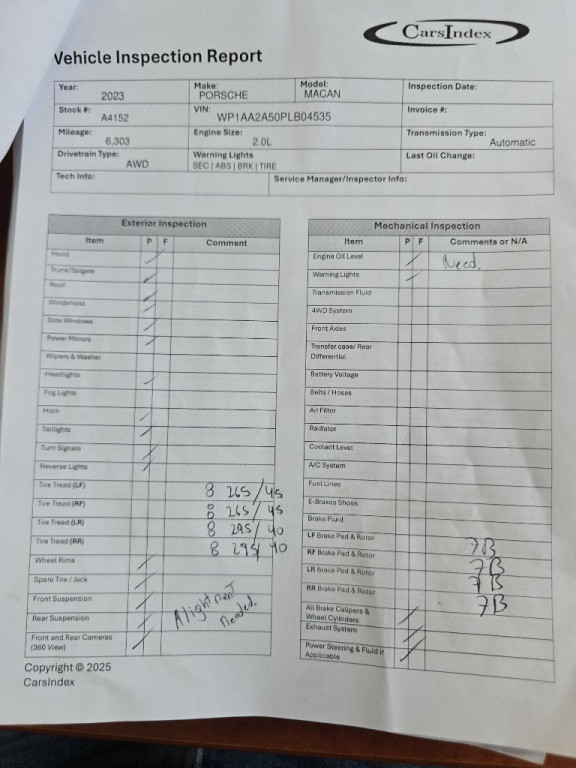 CarsIndex
Vehicle Inspection Report
Year: 2023 Make: PORSCHE Model: MACAN Inspection Date:
Stock #: A4152 VIN: WP1AA2A50PLB04535 Invoice #:
Mileage: 6,303 Engine Size: 2.0L Transmission Type: Automatic
Drivetrain Type: AWD Warning Lights SEC | ABS | BRK | TIRE Last Oil Change:
Tech Info: Service Manager/Inspector Info:
Exterior Inspection
Item P F Comment
Hood
Trunk/Tailgate
Roof
Windshield
Side Windows
Power Mirrors
Wipers & Washer
Headlights
Fog Lights
Horn
Taillights
Turn Signals
Reverse Lights
Tire Tread (LF) 8 265/45
Tire Tread (RF) 8 265/45
Tire Tread (LR) 8 295/40
Tire Tread (RR) 8 295/40
Wheel Rims
Spare Tire / Jack
Front Suspension
Rear Suspension
Alightment
Needed
Front and Rear Cameras
(360 View)
Mechanical Inspection
Item P F Comments or N/A
Engine Oil Level Need.
Warning Lights
Transmission Fluid
4WD System
Front Axles
Transfer case/ Rear
Differential
Battery Voltage
Belts / Hoses
Air Filter
Radiator
Coolant Level
A/C System
Fuel Lines
E-Brakes Shoes
Brake Fluid
LF Brake Pad & Rotor 7B
RF Brake Pad & Rotor 7B
LR Brake Pad & Rotor 7B
RR Brake Pad & Rotor 7B
All Brake Calipers &
Wheel Cylinders
Exhaust System
Power Steering & Fluid if
Applicable
Copyright © 2025
CarsIndex